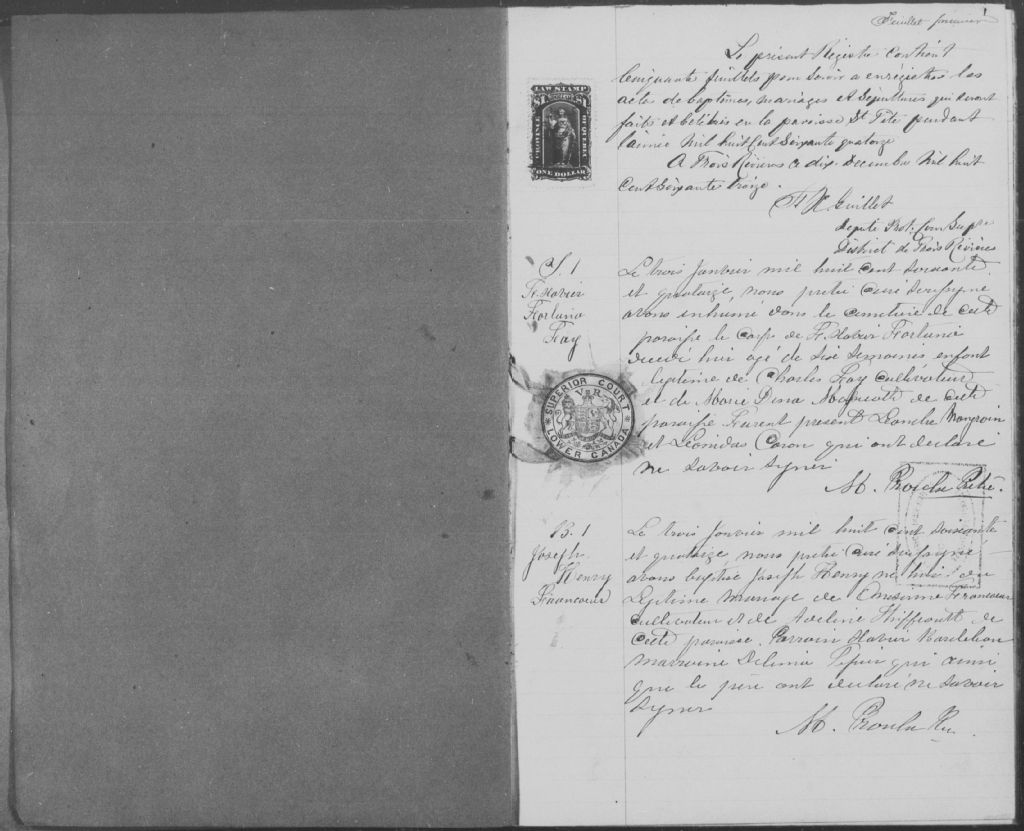 Feuillet premier
1
Le présent Régistre Contient
Cinquante feuillets pour servir a enrégistrer les
actes de baptêmes, mariages et Sépultures qui seront
faits et célébrés en la paroisse St
pendant
l'année Mil huit Cent Soixante quatorze
A Trois Rivières ce dix Decembre Mil huit
Cent Soixante Treize.
Guillet
député Prot. Cour Supre
District de Trois Rivières
LAW STAMP
$1 $1
PROVINCE OF QUEBEC
ONE DOLLAR
S. 1
F. Xavier
Fortuna
Fay
Le trois Janvier mil huit cent soixante
et quatorze, nous prêtre Curé soussigné
avons inhumé dans le cemetière de cette
paroisse le corps de F. Xavier Fortuna
décédé hier agé de six semaines enfant
légitime de Charles Fay cultivateur
et de Marie Dina de cette
paroisse Furent present Leandre Mongrain
et Leonidas Caron qui ont declaré
ne savoir signer
M. Proulx Ptre.
SUPERIOR COURT
V R
LOWER CANADA
B. 1
Joseph
Henry
Francoeur
Le trois Janvier mil huit cent soixante
et quatorze nous prêtre Curé soussigné
avons baptisé Joseph Henry né hier du
Legitime mariage de Onesime Francoeur
cultivateur et de Adeline Thiffeault de
cette paroisse. Parrain Xavier
marraine Delima qui ainsi
que le père ont declaré ne savoir
signer
M. Proulx Ptre.